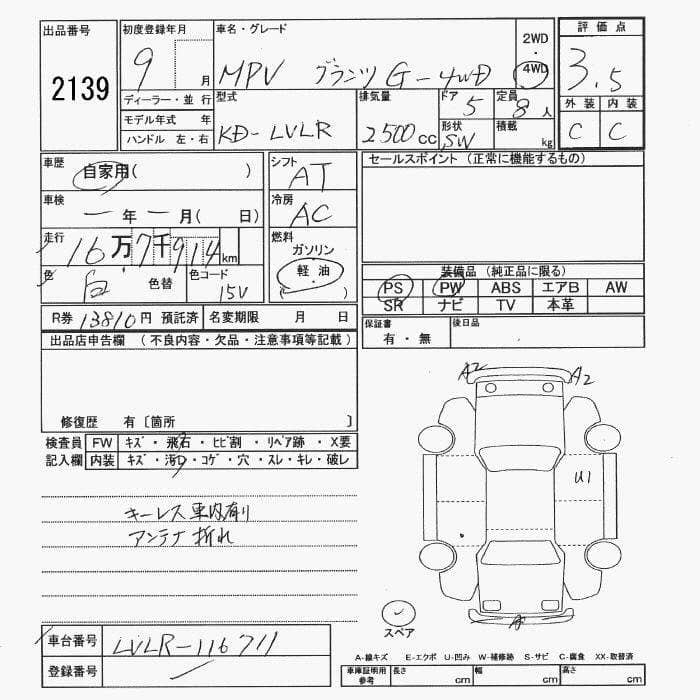 出品番号 初度登録年月 車名・グレード 2WD ・ 4WD 評価点
2139 9 月 MPV グランツ G-4WD 3.5
ディーラー・並行 型式 排気量 ドア 5 定員 8人 外装 内装
モデル年式 年 KD-LVLR 2500cc 形状 SW 積載 kg C C
ハンドル 左・右
車歴 自家用( ) シフト AT セールスポイント (正常に機能するもの)
車検 ー年ー月( 日) 冷房 AC
走行 16万7千914km 燃料 ガソリン
色 白 色替 色コード 15V 軽油 ( )
装備品 (純正品に限る)
PS PW ABS エアB AW
SR ナビ TV 本革
R券 13810円 預託済 名変期限 月 日
保証書 有・無 後日品
出品店申告欄 (不良内容・欠品・注意事項等記載)
修復歴 有〔箇所 〕
検査員 FW キズ・飛石・ヒビ割・リペア跡・X要
記入欄 内装 キズ・汚れ・コゲ・穴・スレ・キレ・破レ
キーレス車内有り
アンテナ折れ
A2 A2
U1
A
スペア
車台番号 LVLR-116711
登録番号
A-線キズ E-エクボ U-凹み W-補修跡 S-サビ C-腐食 XX-取替済
車庫証明用参考 長さ cm 幅 cm 高さ cm